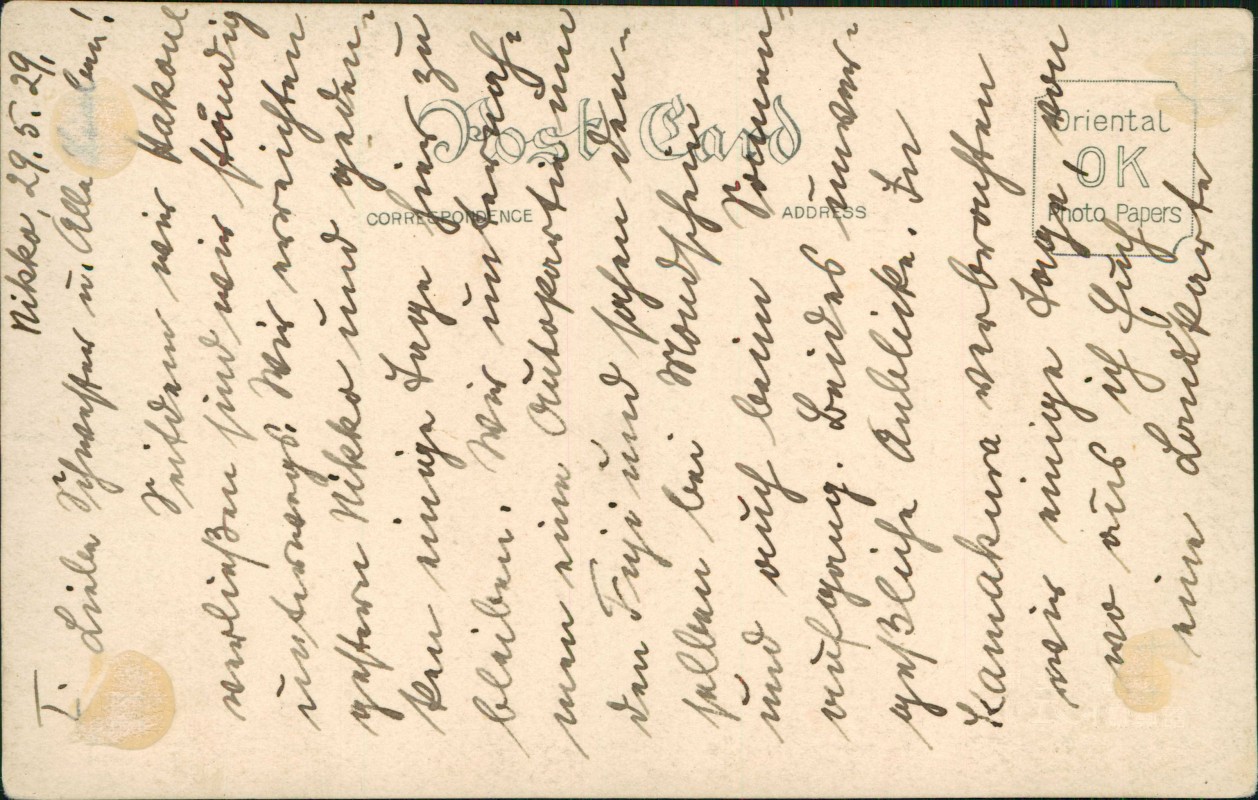 I.
Nikko, 29. 5. 29.
Liebe Schwester u. Alle
Seitdem wir Hakone
verließen sind wir ständig
unterwegs. Wir erreichten
gestern Nikko und geden-
ken einige Tage hier zu
bleiben. Wir unternah-
men eine Autopartie um
den Fuji und sahen den-
selben bei Mondschein
und auch beim Sonnen-
aufgang. Beides unver-
geßliche Anblicke. In
Kamakura verbrachten
wir einige Tage, von
wo aus ich Euch
eine Landkarte
Post Card
CORRESPONDENCE
ADDRESS
Oriental
OK
Photo Papers